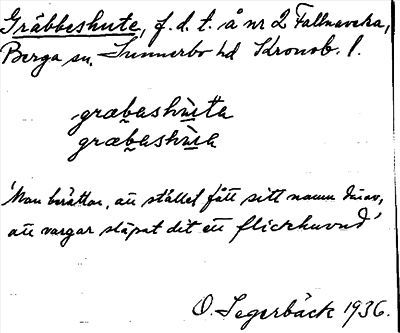 Gräbbeshute, f. d. t. å nr 2 Fallnaveka,
Berga sn. Sunnerbo hd Kronob. l.
græbashùta
græbashùa
'Man berättar, att stället fått sitt namn därav,
att vargar släpat dit ett flickhuvud'
O. Segerbäck 1936.